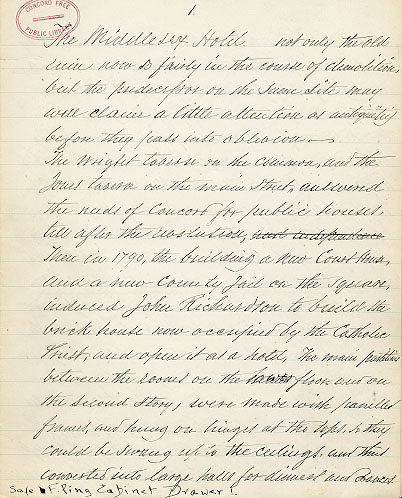 1.
CONCORD FREE
PUBLIC LIBRARY
The Middlesex Hotel not only the old
inn now so fairly in the course of demolition,
but the predecessor on the same site may
well claim a little attention as antiquities
before they pass into oblivion.
The Wright tavern on the common, and the
Jones tavern on the main Street, answered
the needs of Concord for public houses,
till after the revolution,
Then in 1790, the building a new Court House,
and a new County Jail on the Square,
induced John Richardson to build the
brick house now occupied by the Catholic
Priest, and open it as a hotel, The main partitions
between the rooms on the lower floor and on
the second story, were made with panelled
frames, and hung on hinges at the tops, so they
could be swung up to the ceilings and thus
converted into large halls for dinners and dances
Safe Filing Cabinet Drawer 1.